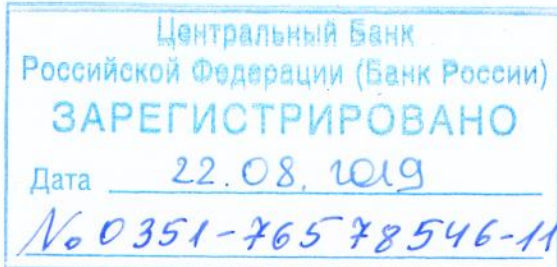 Центральный Банк
Российской Федерации (Банк России)
ЗАРЕГИСТРИРОВАНО
Дата 22.08.2019
№ 0351-76578546-11